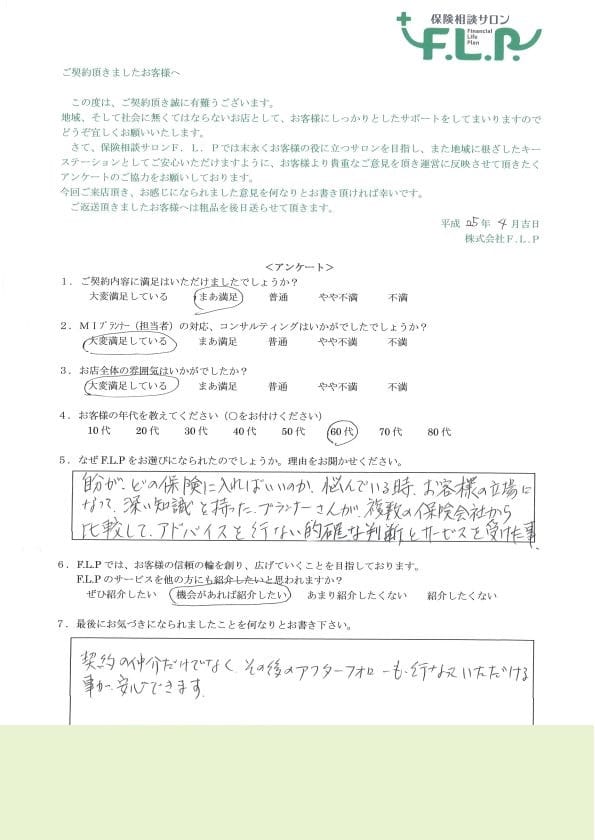 保険相談サロン
F.L.P.
Financial
Life
Plan
ご契約頂きましたお客様へ
この度は、ご契約頂き誠に有難うございます。
地域、そして社会に無くてはならないお店として、お客様にしっかりとしたサポートをしてまいりますので
どうぞ宜しくお願いいたします。
さて、保険相談サロンF．L．Pでは末永くお客様の役に立つサロンを目指し、また地域に根ざしたキー
ステーションとしてご安心いただけますように、お客様より貴重なご意見を頂き運営に反映させて頂きたく
アンケートのご協力をお願いしております。
今回ご来店頂き、お感じになられました意見を何なりとお書き頂ければ幸いです。
ご返送頂きましたお客様へは粗品を後日送らせて頂きます。
平成 25年 4月吉日
株式会社F．L．P
＜アンケート＞
1．ご契約内容に満足はいただけましたでしょうか？
大変満足している まあ満足 普通 やや不満 不満
2．MIプランナー（担当者）の対応、コンサルティングはいかがでしたでしょうか？
大変満足している まあ満足 普通 やや不満 不満
3．お店全体の雰囲気はいかがでしたか？
大変満足している まあ満足 普通 やや不満 不満
4．お客様の年代を教えてください（○をお付けください）
10代 20代 30代 40代 50代 60代 70代 80代
5．なぜF.L.Pをお選びになられたのでしょうか。理由をお聞かせください。
自分が、どの保険に入ればいいのか、悩んでいる時、お客様の立場に
なって、深い知識を持った、プランナーさんが、複数の保険会社から
比較して、アドバイスを行ない的確な判断とサービスを受けた事、
6．F.L.Pでは、お客様の信頼の輪を創り、広げていくことを目指しております。
F.L.Pのサービスを他の方にも紹介したいと思われますか？
ぜひ紹介したい 機会があれば紹介したい あまり紹介したくない 紹介したくない
7．最後にお気づきになられましたことを何なりとお書き下さい。
契約の仲介だけでなく、その後のアフターフォローも、行なっていただける
事が、安心できます。